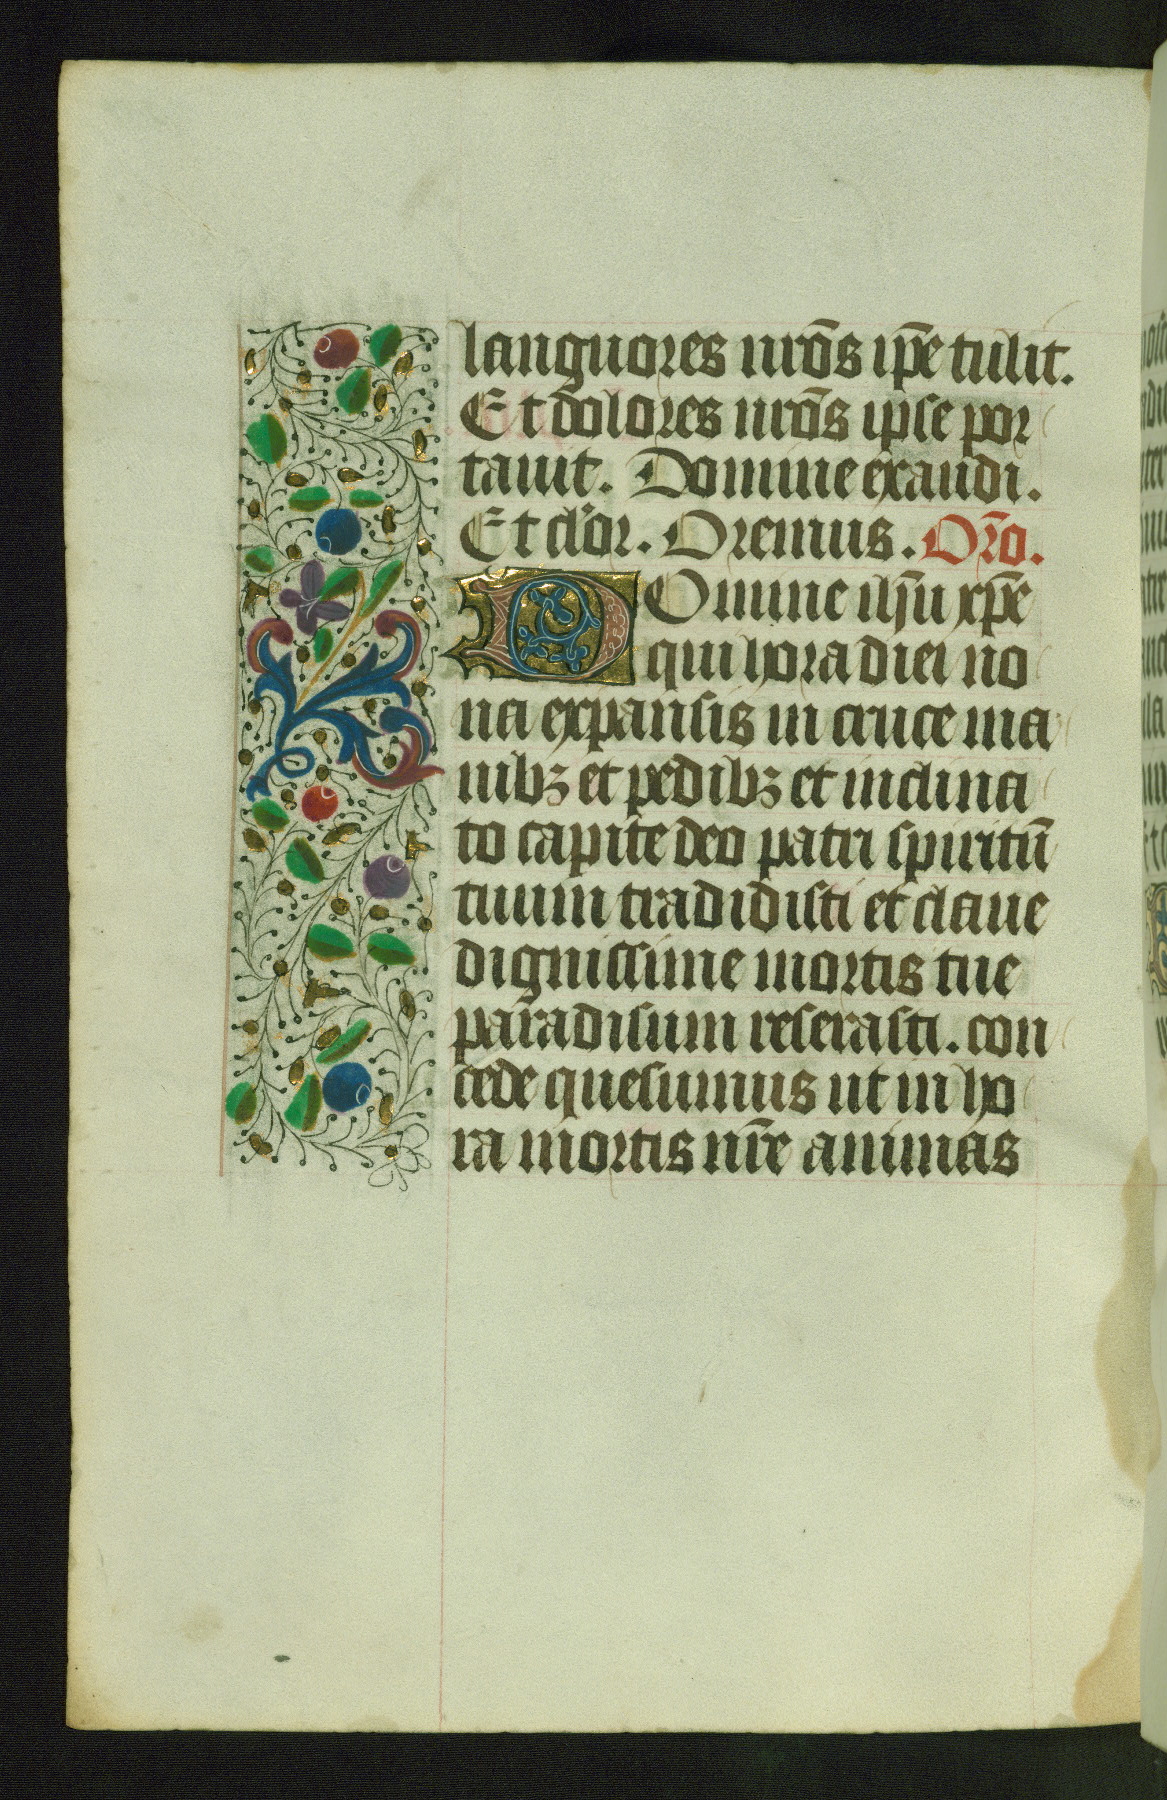 languores nr̄os ip̄e tulit.
Et dolores nr̄os ipse por
tauit. Domine exaudi.
Et cla̅or. Oremus. Or̄o.
DOmine ih̄u xp̄e
qui hora diei no
na expansis in cruce ma
nibꝫ et pedibꝫ et inclina
to capite deo patri spiritū
tuum tradidisti et claue
dignissime mortis tue
paradisum reserasti. con
cede quesumus ut in ho
ra mortis nr̄e animas